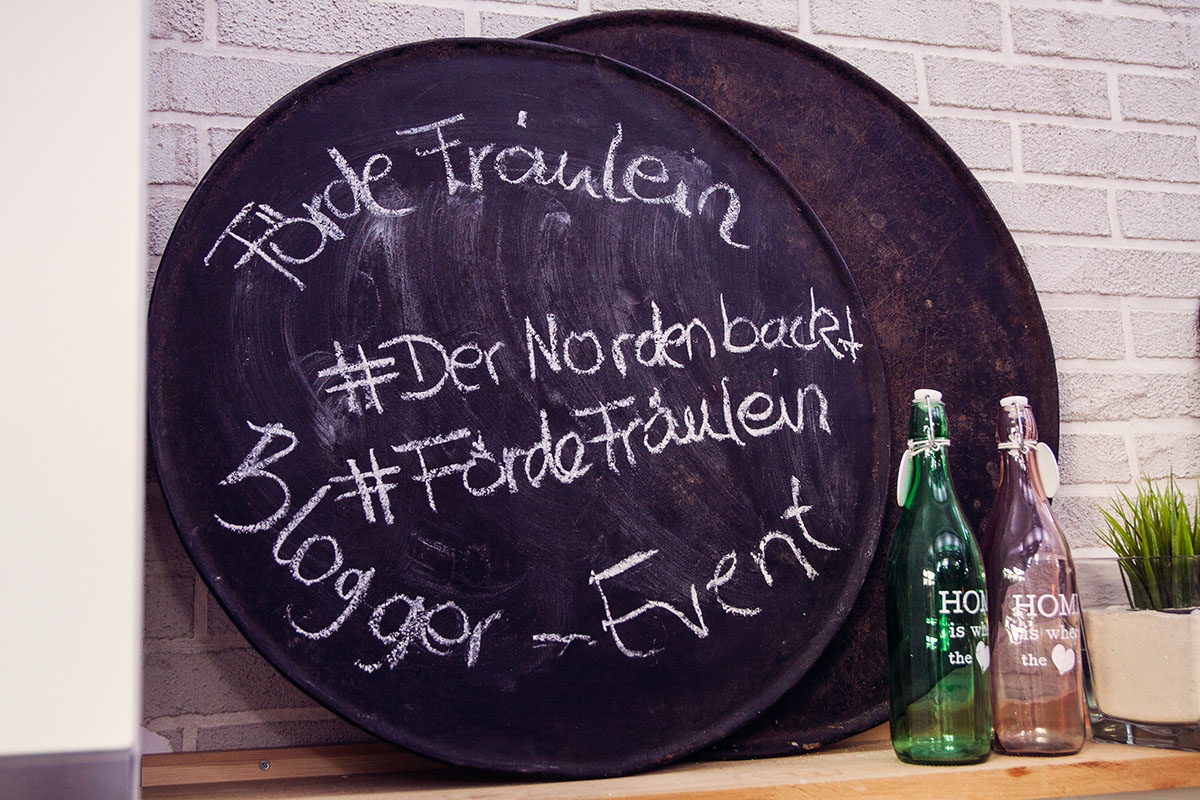 Förde Fräulein
#Der Norden backt
#FördeFräulein
Blogger-Event
HOM
is whe
the
HOM
is whe
the